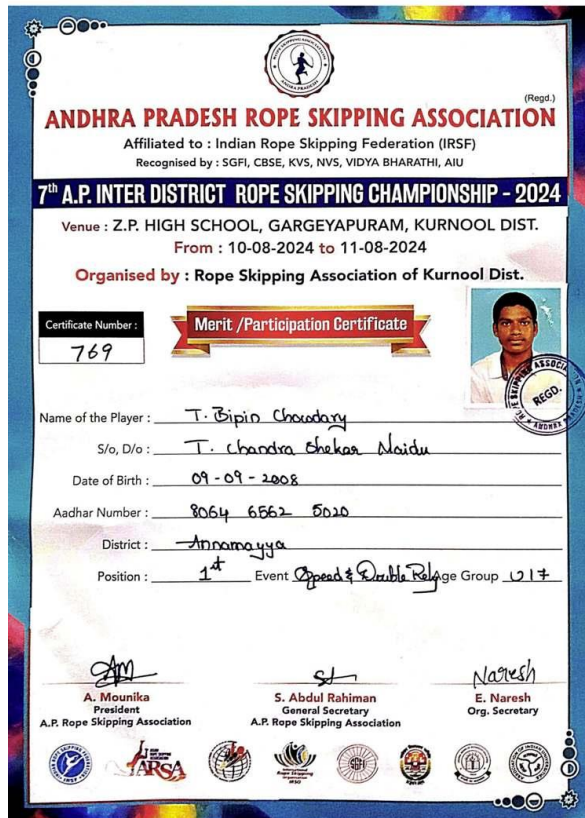 (Regd.)
ANDHRA PRADESH ROPE SKIPPING ASSOCIATION
Affiliated to : Indian Rope Skipping Federation (IRSF)
Recognised by : SGFI, CBSE, KVS, NVS, VIDYA BHARATHI, AIU
7th A.P. INTER DISTRICT ROPE SKIPPING CHAMPIONSHIP - 2024
Venue : Z.P. HIGH SCHOOL, GARGEYAPURAM, KURNOOL DIST.
From : 10-08-2024 to 11-08-2024
Organised by : Rope Skipping Association of Kurnool Dist.
Certificate Number :
769
Merit /Participation Certificate
REGD.
Name of the Player : T. Bipin Chowdary
S/o, D/o : T. Chandra Shekar Naidu
Date of Birth : 09-09-2008
Aadhar Number : 8064 6562 5020
District : Annamayya
Position : 1st Event Speed & Double Rely Age Group U17
Naresh
A. Mounika
President
A.P. Rope Skipping Association
S. Abdul Rahiman
General Secretary
A.P. Rope Skipping Association
E. Naresh
Org. Secretary
ARSA